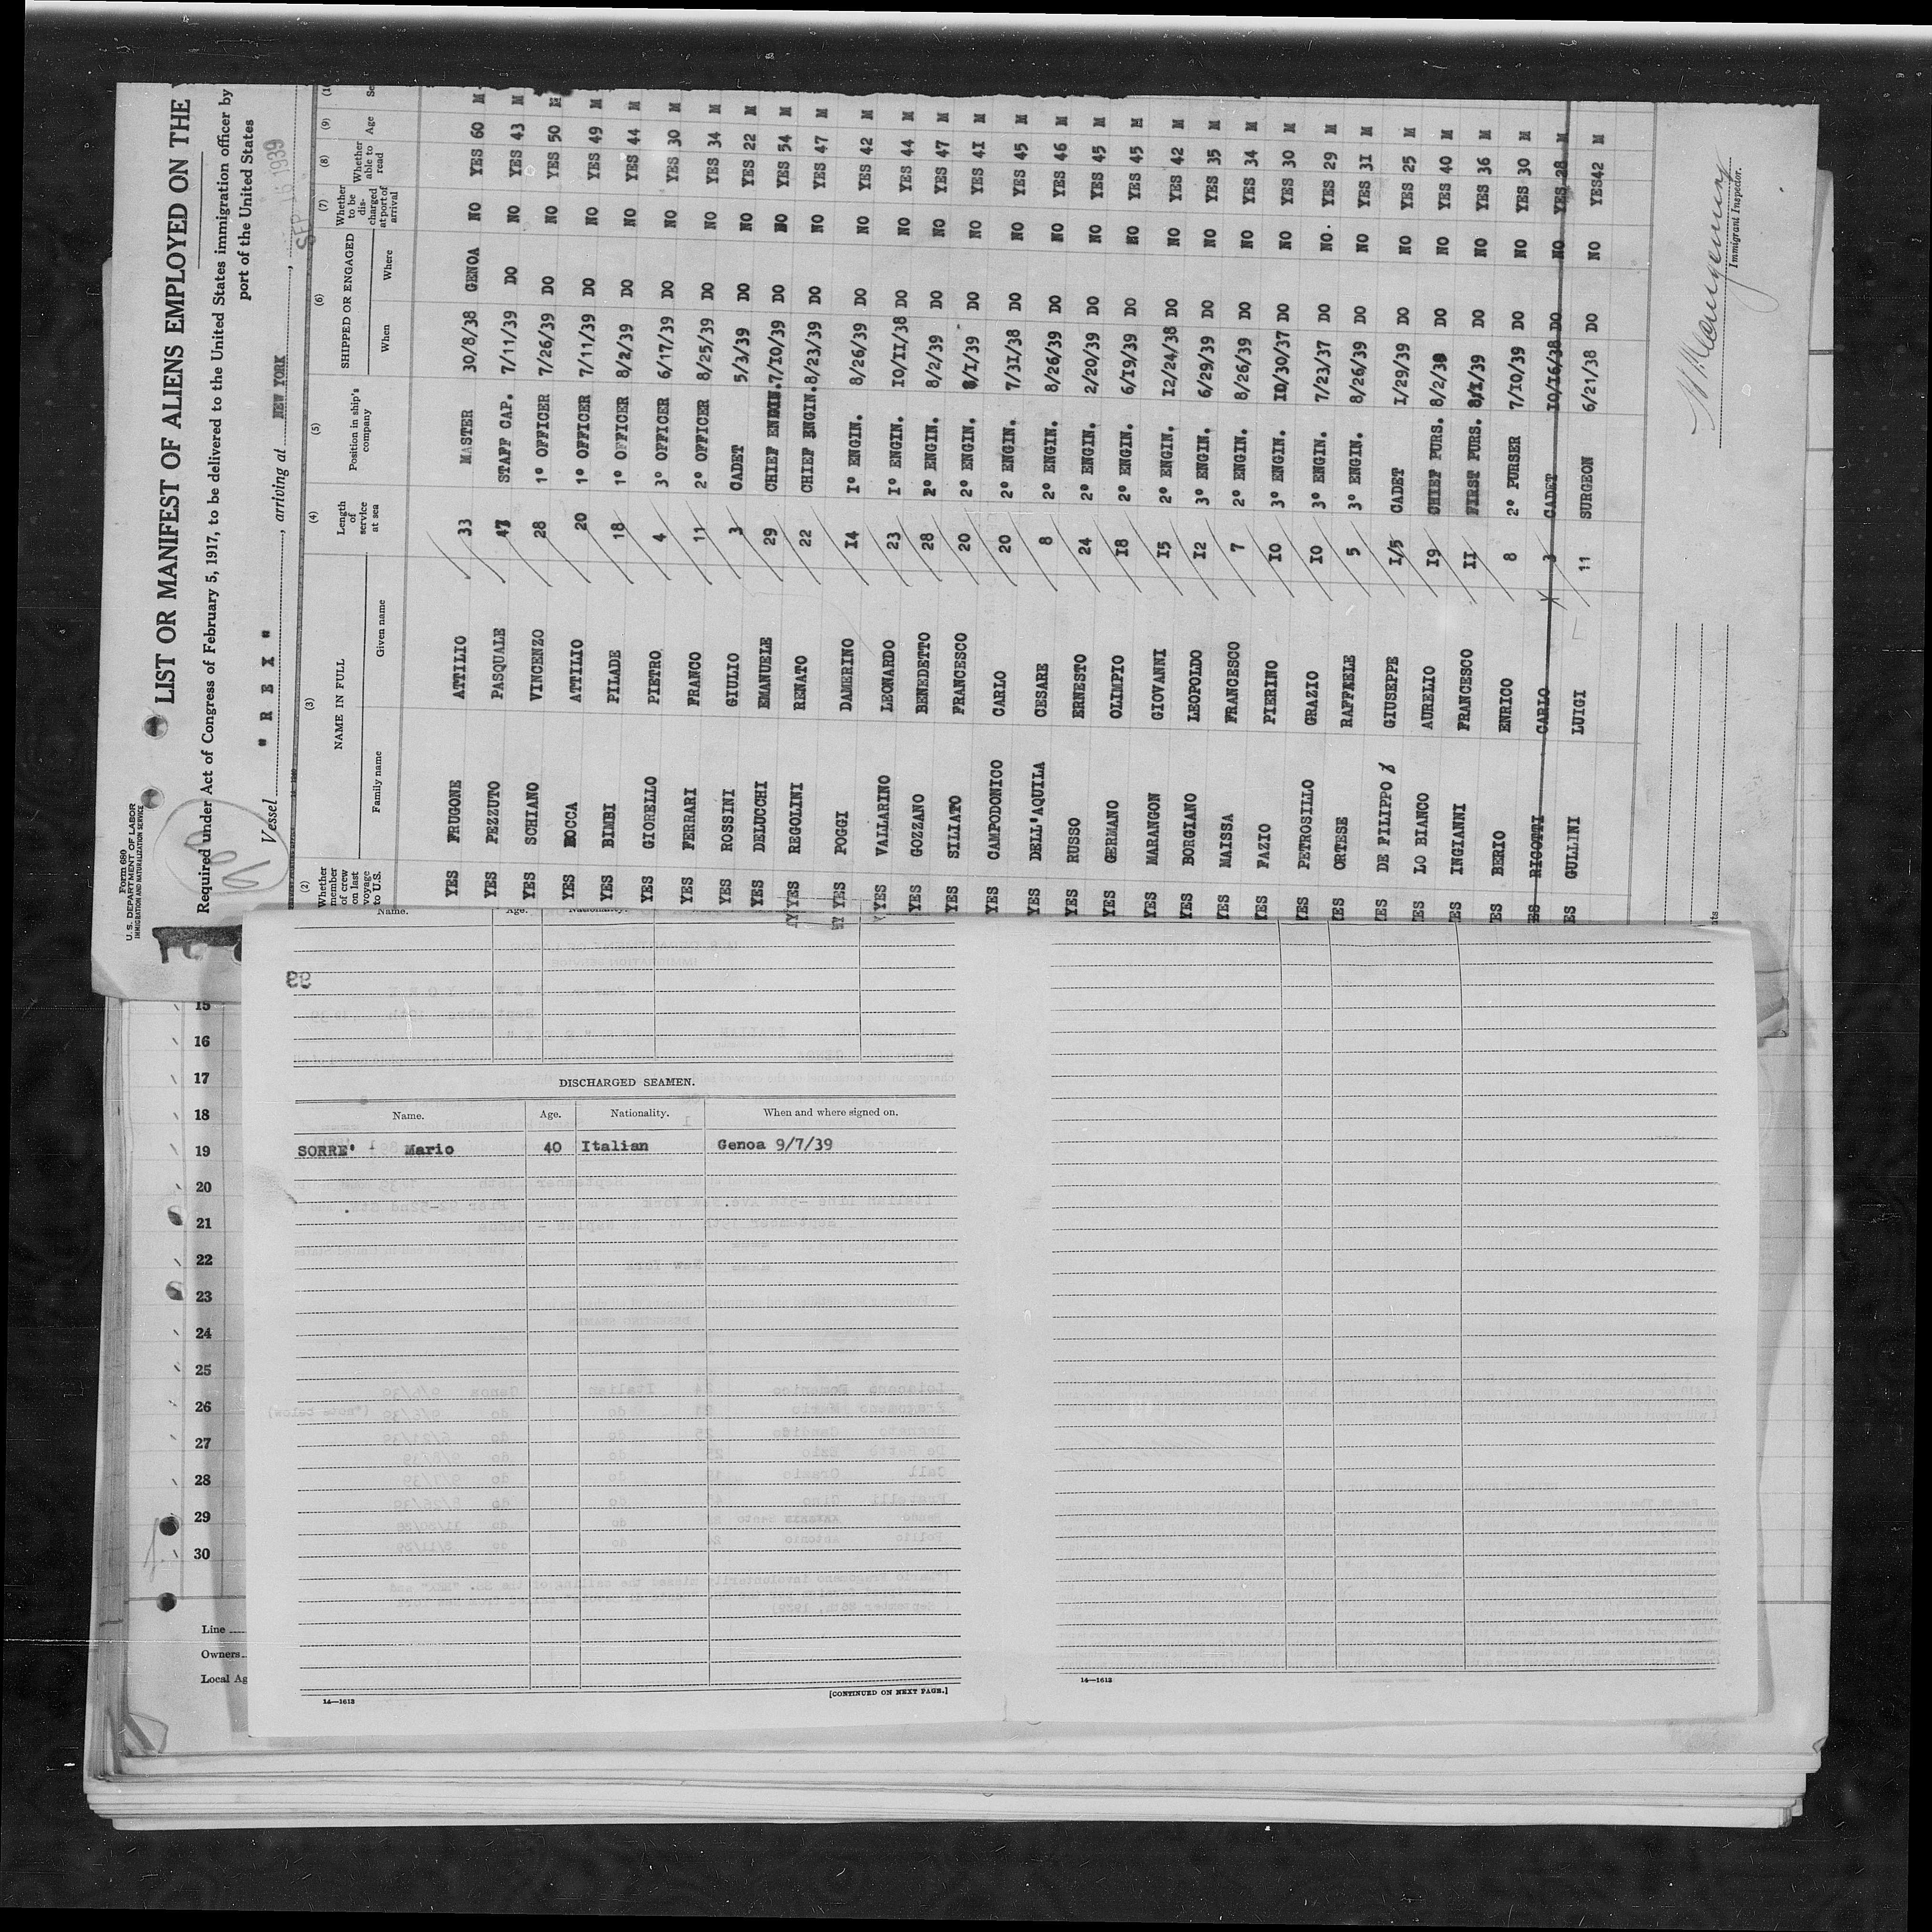 Form 680
U. S. DEPARTMENT OF LABOR
IMMIGRATION AND NATURALIZATION SERVICE
LIST OR MANIFEST OF ALIENS EMPLOYED ON THE
Required under Act of Congress of February 5, 1917, to be delivered to the United States immigration officer by
port of the United States
Vessel " R E X " , arriving at NEW YORK , SEP 15 1939
(2) (3) (4) (5) (6) (7) (8) (9)
Whether member of crew on last voyage to U.S. NAME IN FULL Family name Given name Length of service at sea Position in ship's company SHIPPED OR ENGAGED When Where Whether to be discharged at port of arrival Whether able to read Age
YES FRUGONE ATTILIO 33 MASTER 30/8/38 GENOA NO YES 60 M
YES PEZZUTO PASQUALE STAFF CAP. 7/11/39 DO NO YES 43 M
YES SCHIANO VINCENZO 28 1° OFFICER 7/26/39 DO NO YES 50 M
YES BOCCA ATTILIO 20 1° OFFICER 7/11/39 DO NO YES 49 M
YES BIMBI PILADE 18 1° OFFICER 8/2/39 DO NO YES 44 M
YES GIORELLO PIETRO 4 3° OFFICER 6/17/39 DO NO YES 30 M
YES FERRARI FRANCO 11 2° OFFICER 8/25/39 DO NO YES 34 M
YES ROSSINI GIULIO 3 CADET 5/3/39 DO NO YES 22 M
YES DELUCCHI EMANUELE 29 CHIEF ENGIN. 7/10/39 DO NO YES 54 M
YES REGOLINI RENATO 22 CHIEF ENGIN. 8/23/39 DO NO YES 47 M
YES POGGI DAMERINO I4 I° ENGIN. 8/26/39 DO NO YES 42 M
YES VALLARINO LEONARDO 23 I° ENGIN. IO/II/38 DO NO YES 44 M
YES GOZZANO BENEDETTO 28 2° ENGIN. 8/2/39 DO NO YES 47 M
YES SILIATO FRANCESCO 20 2° ENGIN. 8/I/39 DO NO YES 4I M
YES CAMPODONICO CARLO 20 2° ENGIN. 7/3I/38 DO NO YES 45 M
YES DELL'AQUILA CESARE 8 2° ENGIN. 8/26/39 DO NO YES 46 M
YES RUSSO ERNESTO 24 2° ENGIN. 2/20/39 DO NO YES 45 M
YES GERMANO OLIMPIO I8 2° ENGIN. 6/I9/39 DO NO YES 45 M
YES MARANGON GIOVANNI I5 2° ENGIN. I2/24/38 DO NO YES 42 M
YES BORGIANO LEOPOLDO I2 3° ENGIN. 6/29/39 DO NO YES 35 M
YES MAISSA FRANCESCO 7 2° ENGIN. 8/26/39 DO NO YES 34 M
YES FAZIO PIERINO IO 3° ENGIN. IO/30/37 DO NO YES 30 M
YES PETROSILLO GRAZIO IO 3° ENGIN. 7/23/37 DO NO. YES 29 M
YES ORTESE RAFFAELE 5 3° ENGIN. 8/26/39 DO NO YES 3I M
YES DE FILIPPO GIUSEPPE I/5 CADET I/29/39 DO NO YES 25 M
YES LO BIANCO AURELIO I9 CHIEF PURS. 8/2/38 DO NO YES 40 M
YES INGIANNI FRANCESCO II FIRST PURS. 8/I/39 DO NO YES 36 M
YES BERIO ENRICO 8 2° PURSER 7/10/39 DO NO YES 30 M
ES RIGOTTI CARLO 3 CADET IO/I6/38 DO NO YES 28 M
ES GULLINI LUIGI 11 SURGEON 6/21/38 DO NO YES42 M
Immigrant Inspector.
15
16
17
18
19
20
21
22
23
24
25
26
27
28
29
30
Line
Owners
Local Ag
Name. Age. Nationality.
99
DISCHARGED SEAMEN.
Name. Age. Nationality. When and where signed on.
SORRE' Mario 40 Italian Genoa 9/7/39
14—1613 [CONTINUED ON NEXT PAGE.]
14—1613